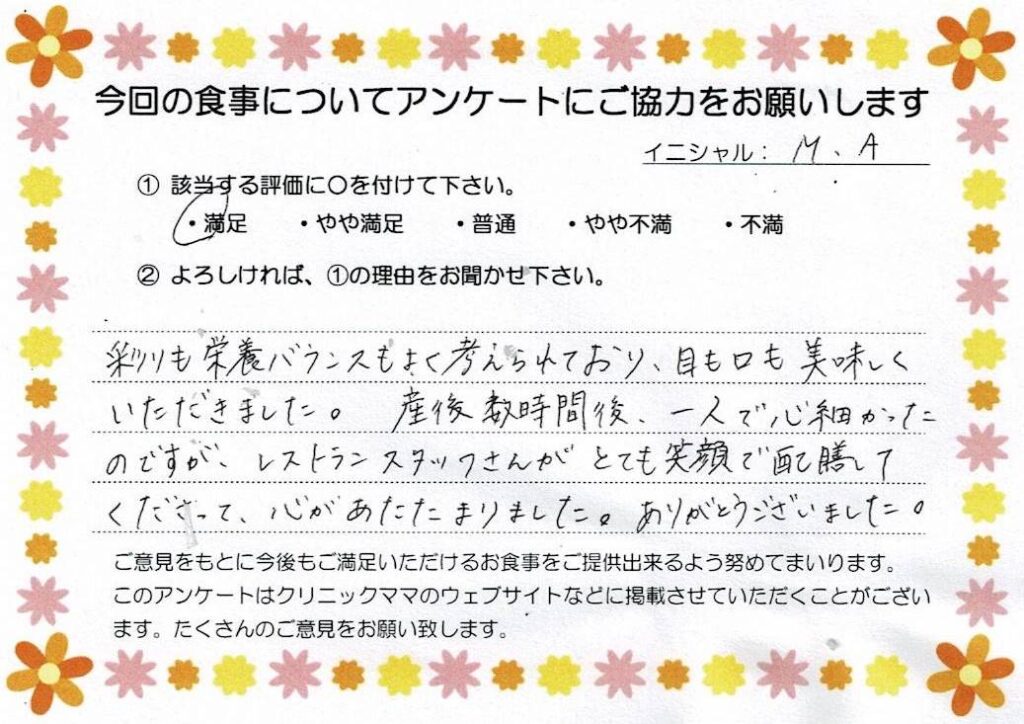 今回の食事についてアンケートにご協力をお願いします
イニシャル: M、A
① 該当する評価に○を付けて下さい。
・満足 ・やや満足 ・普通 ・やや不満 ・不満
② よろしければ、①の理由をお聞かせ下さい。
彩りも栄養バランスもよく考えられており、目も口も美味しく
いただきました。 産後数時間後、一人で心細かった
のですが、レストランスタッフさんがとても笑顔で配膳して
くださって、心があたたまりました。ありがとうございました。
ご意見をもとに今後もご満足いただけるお食事をご提供出来るよう努めてまいります。
このアンケートはクリニックママのウェブサイトなどに掲載させていただくことがござい
ます。たくさんのご意見をお願い致します。